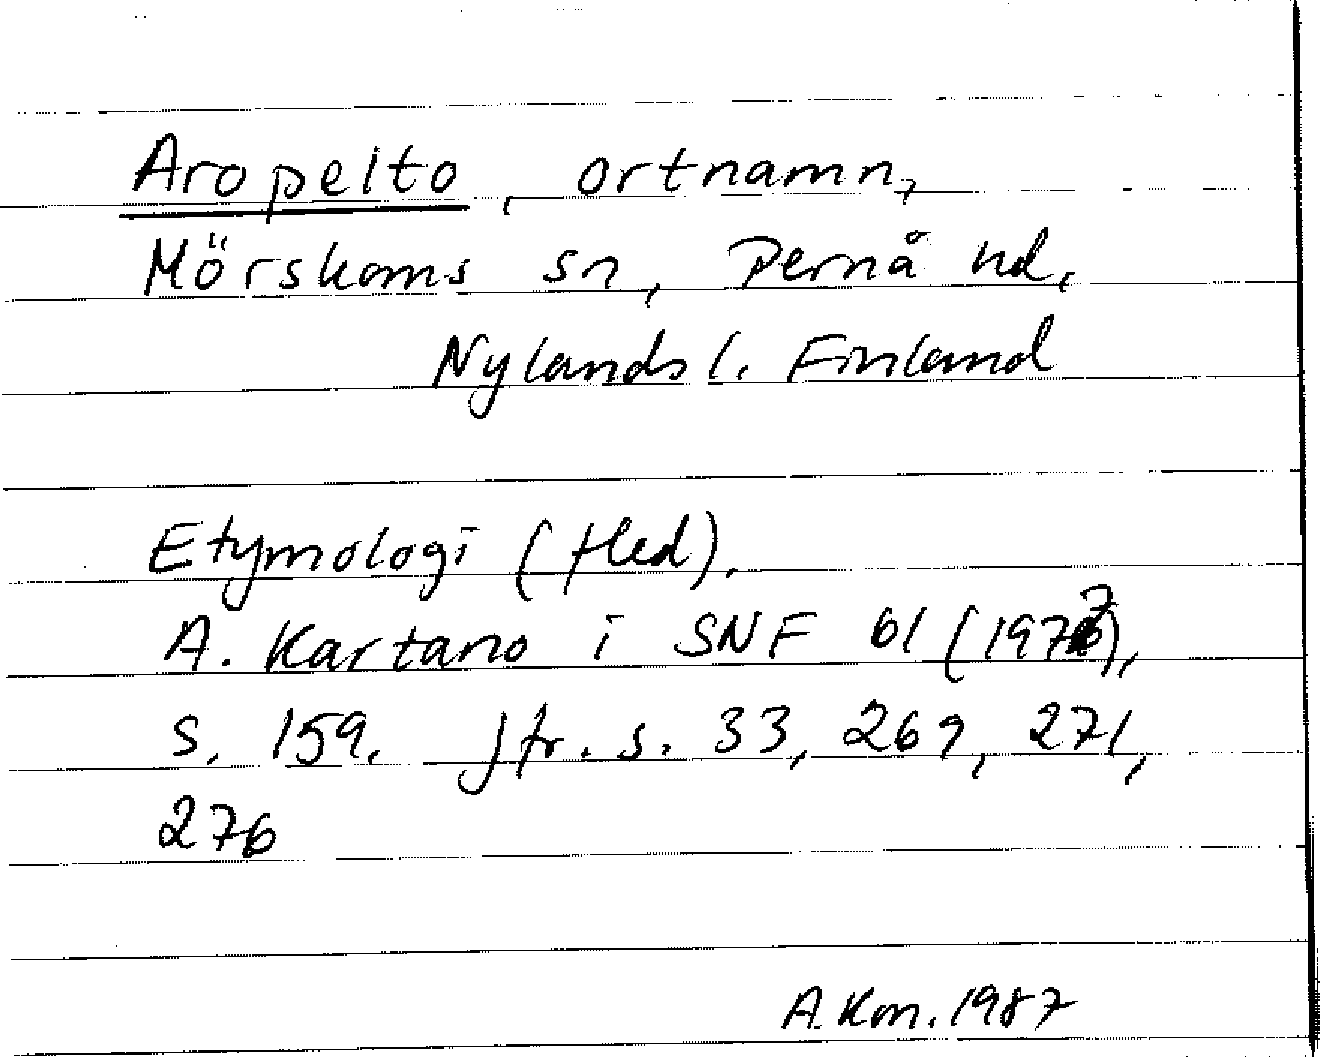 Aropelto, ortnamn,
Mörskoms sn, Pernå hd,
Nylands l. Finland
Etymologi (fled).
A. Kartano i SNF 61 (1977),
s. 159. Jfr. s. 33, 269, 271,
276
A. Km. 1987